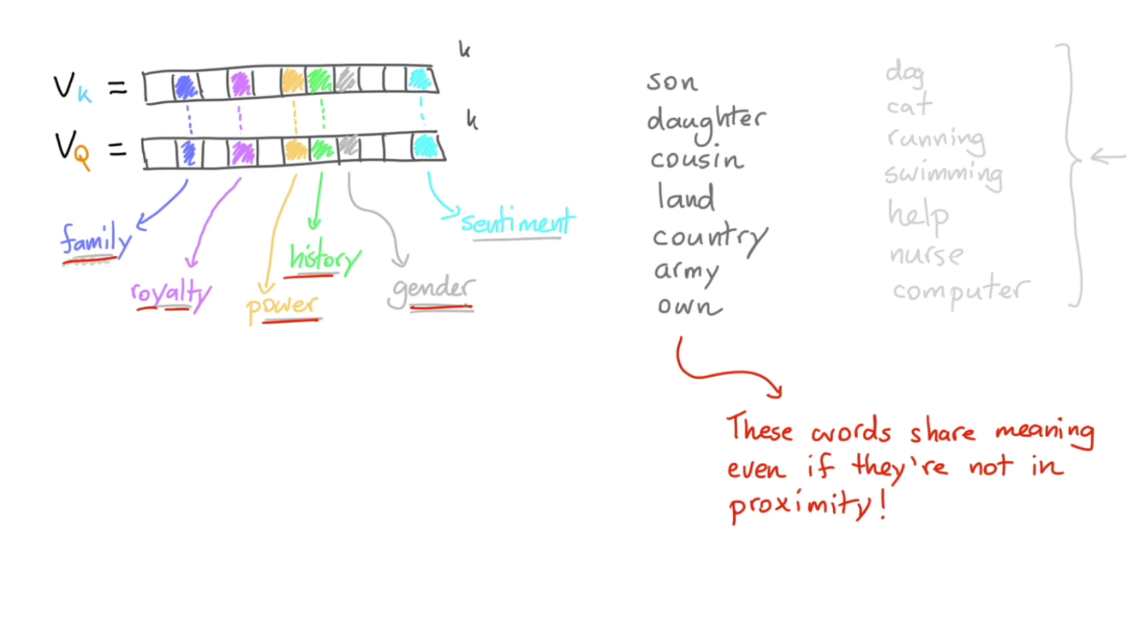 k
V_k =
k
V_Q =
family
royalty
power
history
gender
sentiment
son
daughter
cousin
land
country
army
own
dog
cat
running
swimming
help
nurse
computer
These words share meaning
even if they're not in
proximity!